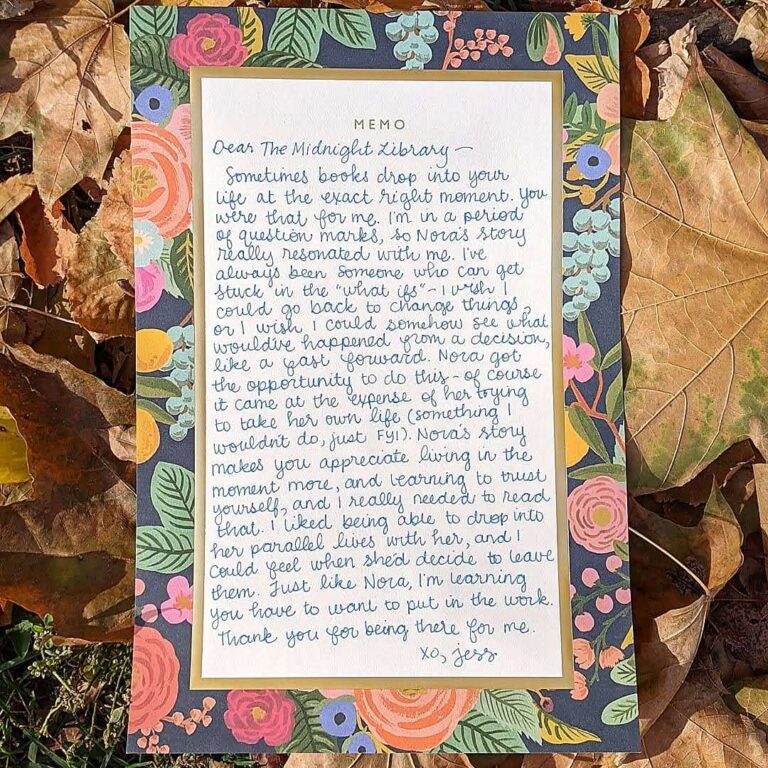 MEMO
Dear The Midnight Library —
Sometimes books drop into your
life at the exact right moment. You
were that for me. I'm in a period
of question marks, so Nora's story
really resonated with me. I've
always been someone who can get
stuck in the "what ifs" - I wish I
could go back to change things,
or I wish I could somehow see what
would've happened from a decision,
like a fast forward. Nora got
the opportunity to do this - of course
it came at the expense of her trying
to take her own life (something I
wouldn't do, just FYI). Nora's story
makes you appreciate living in the
moment more, and learning to trust
yourself, and I really needed to read
that. I liked being able to drop into
her parallel lives with her, and I
could feel when she'd decide to leave
them. Just like Nora, I'm learning
you have to want to put in the work.
Thank you for being there for me.
xo, jess